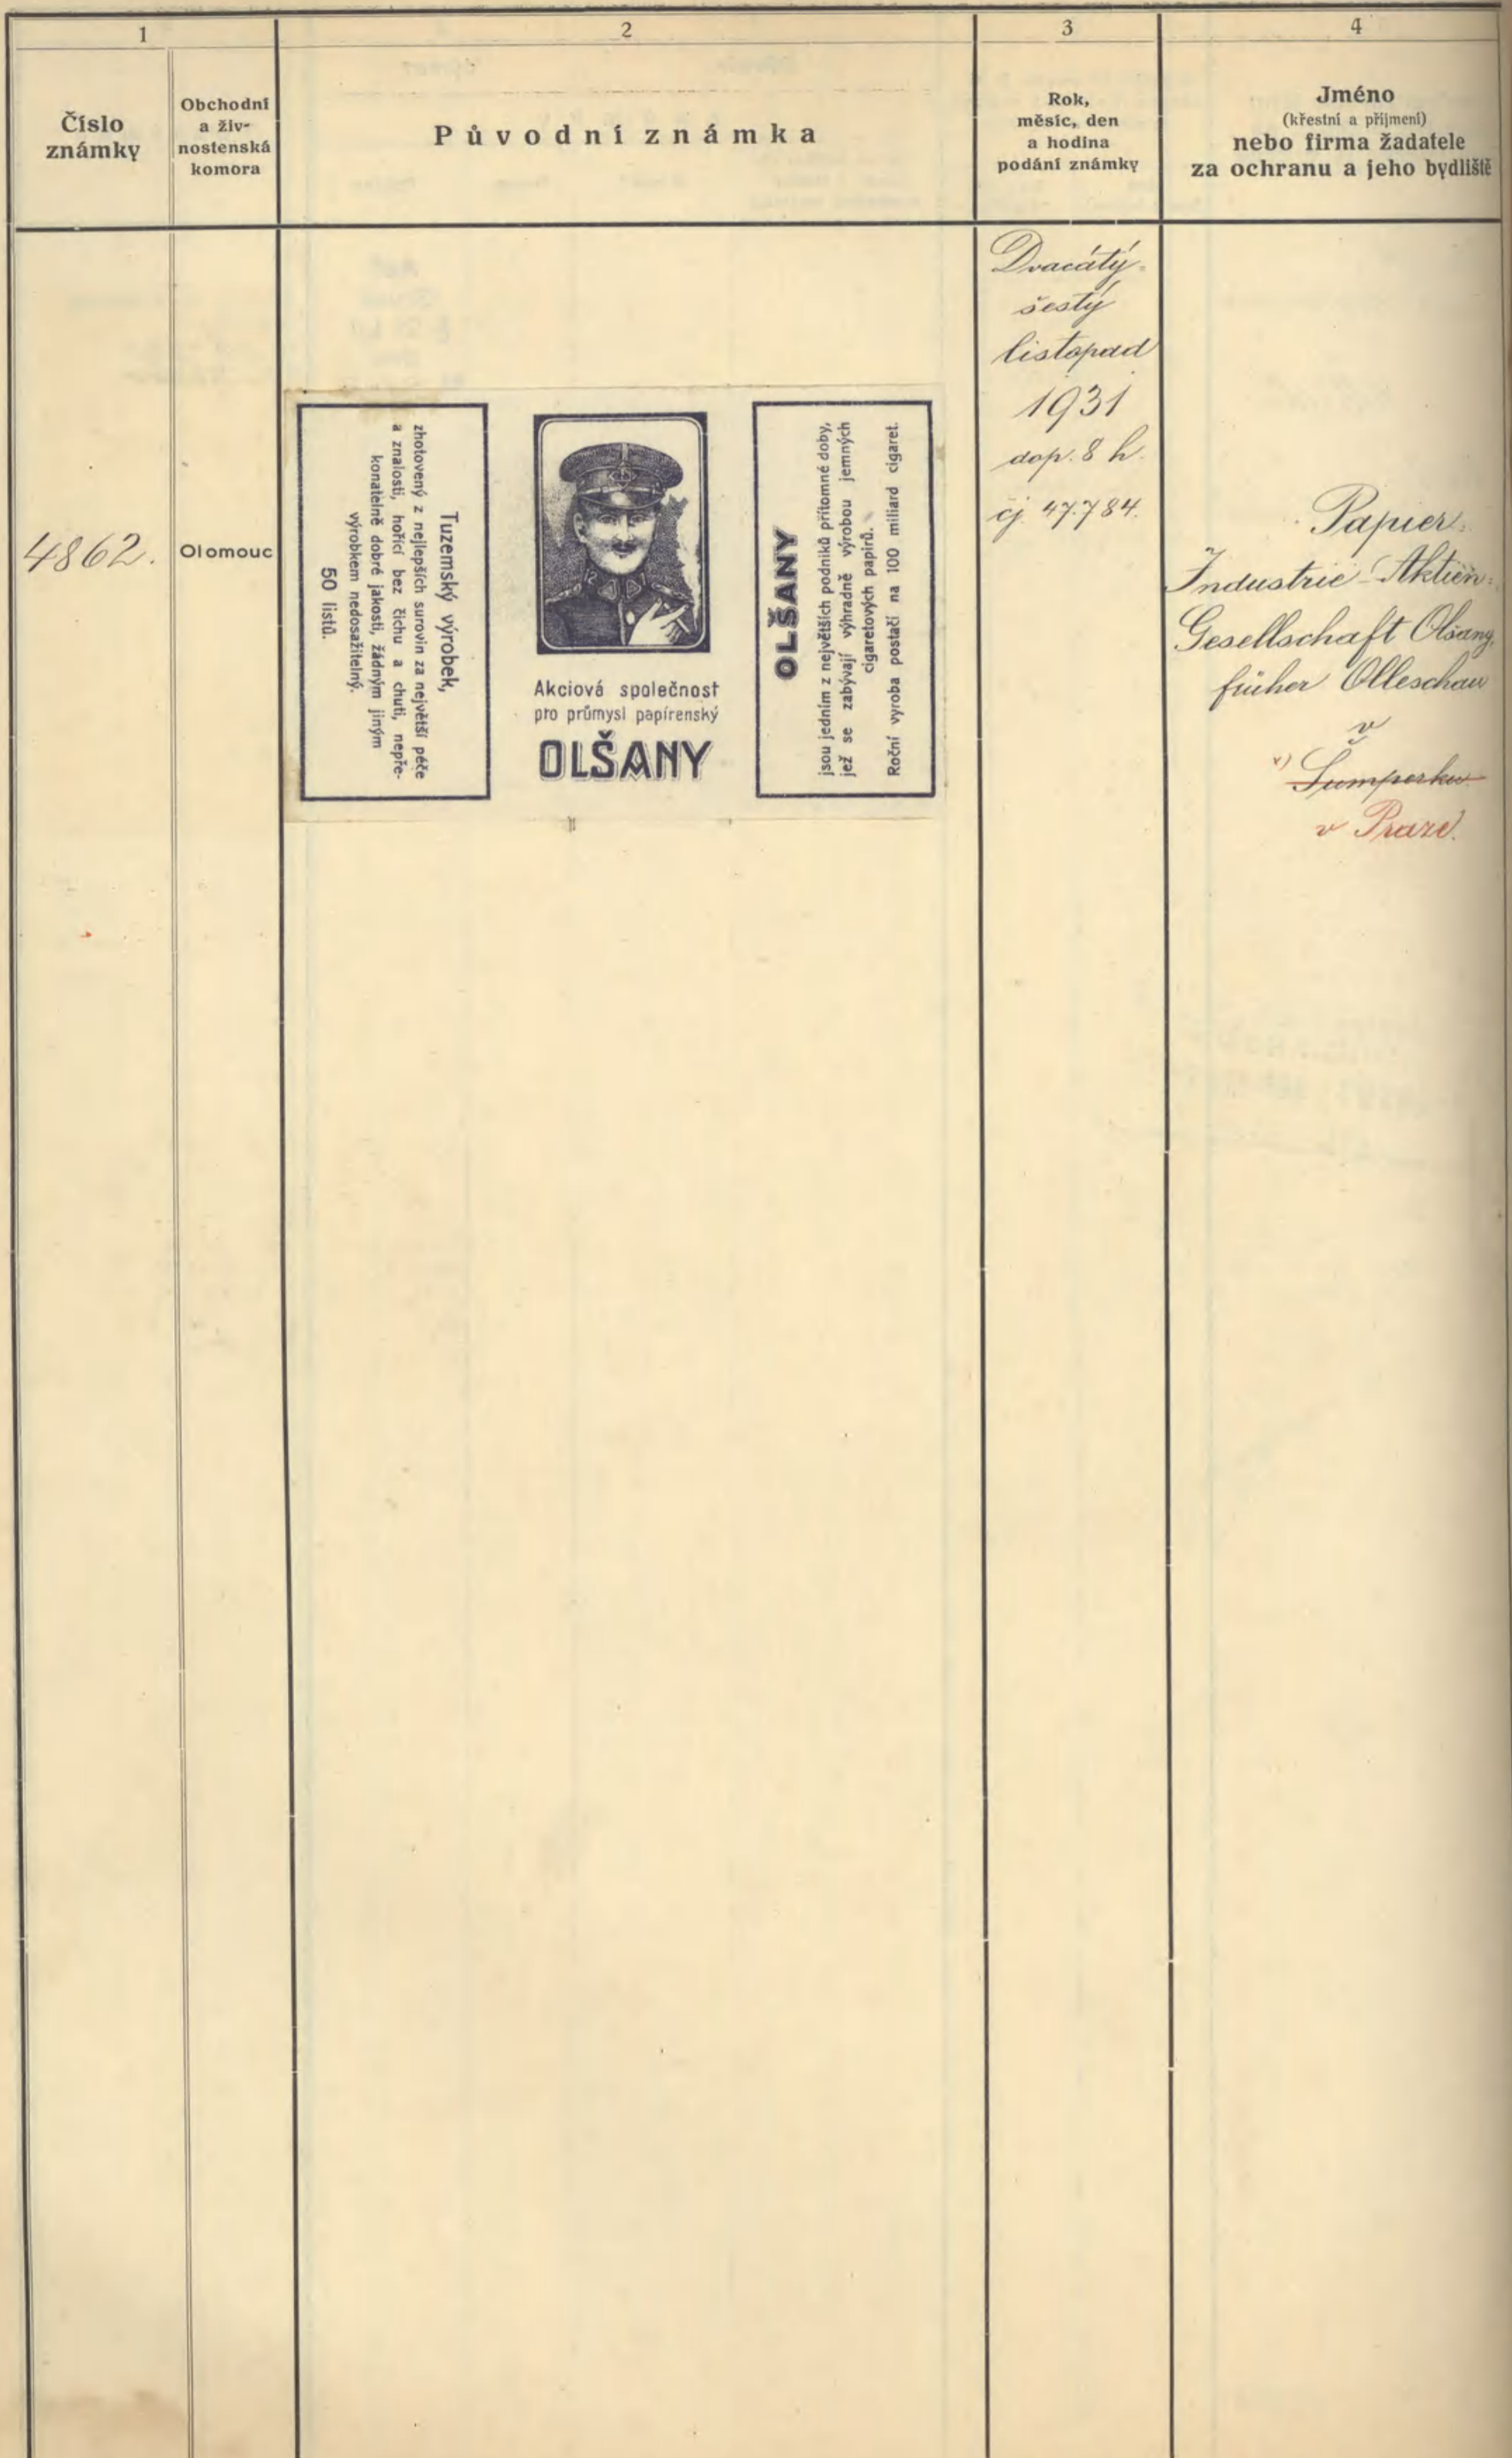 1
2
3
4
Číslo
známky
Obchodní
a živ-
nostenská
komora
Původní známka
Rok,
měsíc, den
a hodina
podání známky
Jméno
(křestní a příjmení)
nebo firma žadatele
za ochranu a jeho bydliště
4862.
Olomouc
Tuzemský výrobek,
zhotovený z nejlepších surovin za největší péče
a znalosti, hořící bez čichu a chuti, nepře-
konatelně dobré jakosti, žádným jiným
výrobkem nedosažitelný.
50 listů.
Akciová společnost
pro průmysl papírenský
OLŠANY
OLŠANY
jsou jedním z největších podniků přítomné doby,
jež se zabývají výhradně výrobou jemných
cigaretových papírů.
Roční vyroba postačí na 100 miliard cigaret.
Dvacátý-
šestý
listopad
1931
dop. 8 h.
čj. 47.784.
Papier-
Industrie-Aktien-
Gesellschaft Olšany,
früher Olleschau
v
v) Šumperku
v Praze.